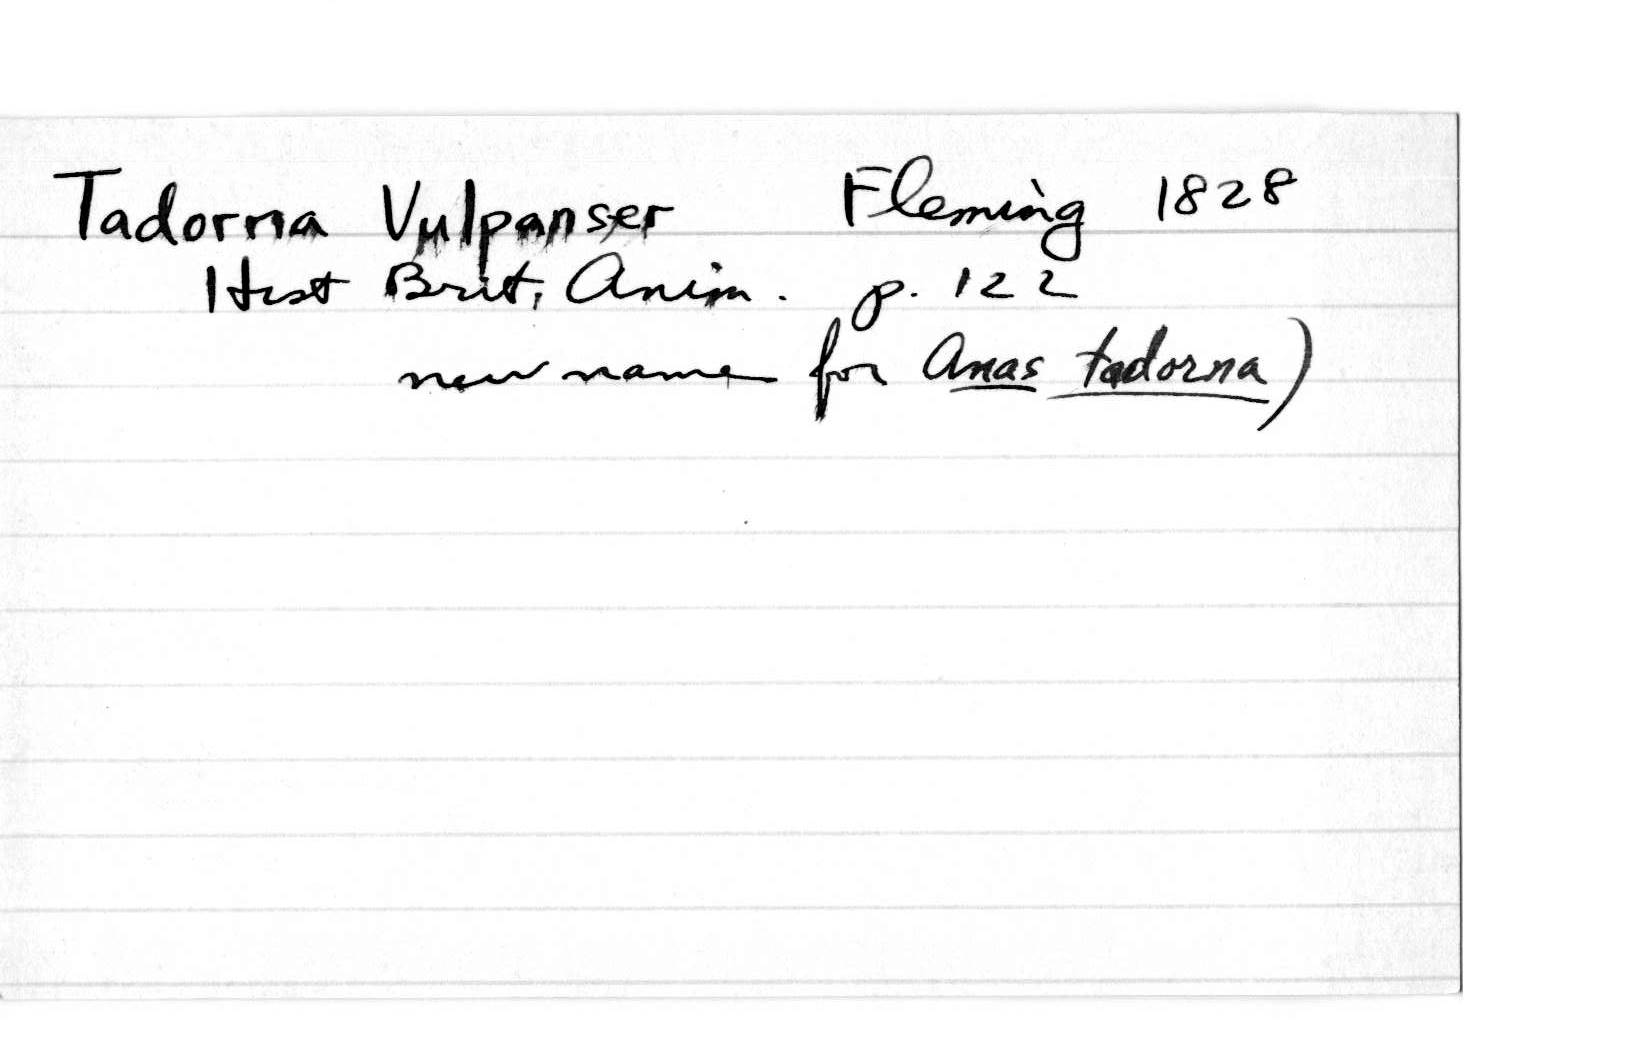 Tadorna Vulpanser Fleming 1828
Hist Brit. Anim. p. 122
new name for Anas tadorna)